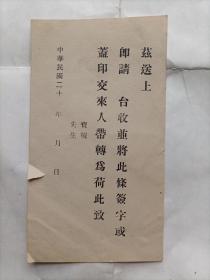 茲送上
即請　台收並將此條簽字或
蓋印交來人帶轉為荷此致
寶號
先生
中華民國二十　年　月　日